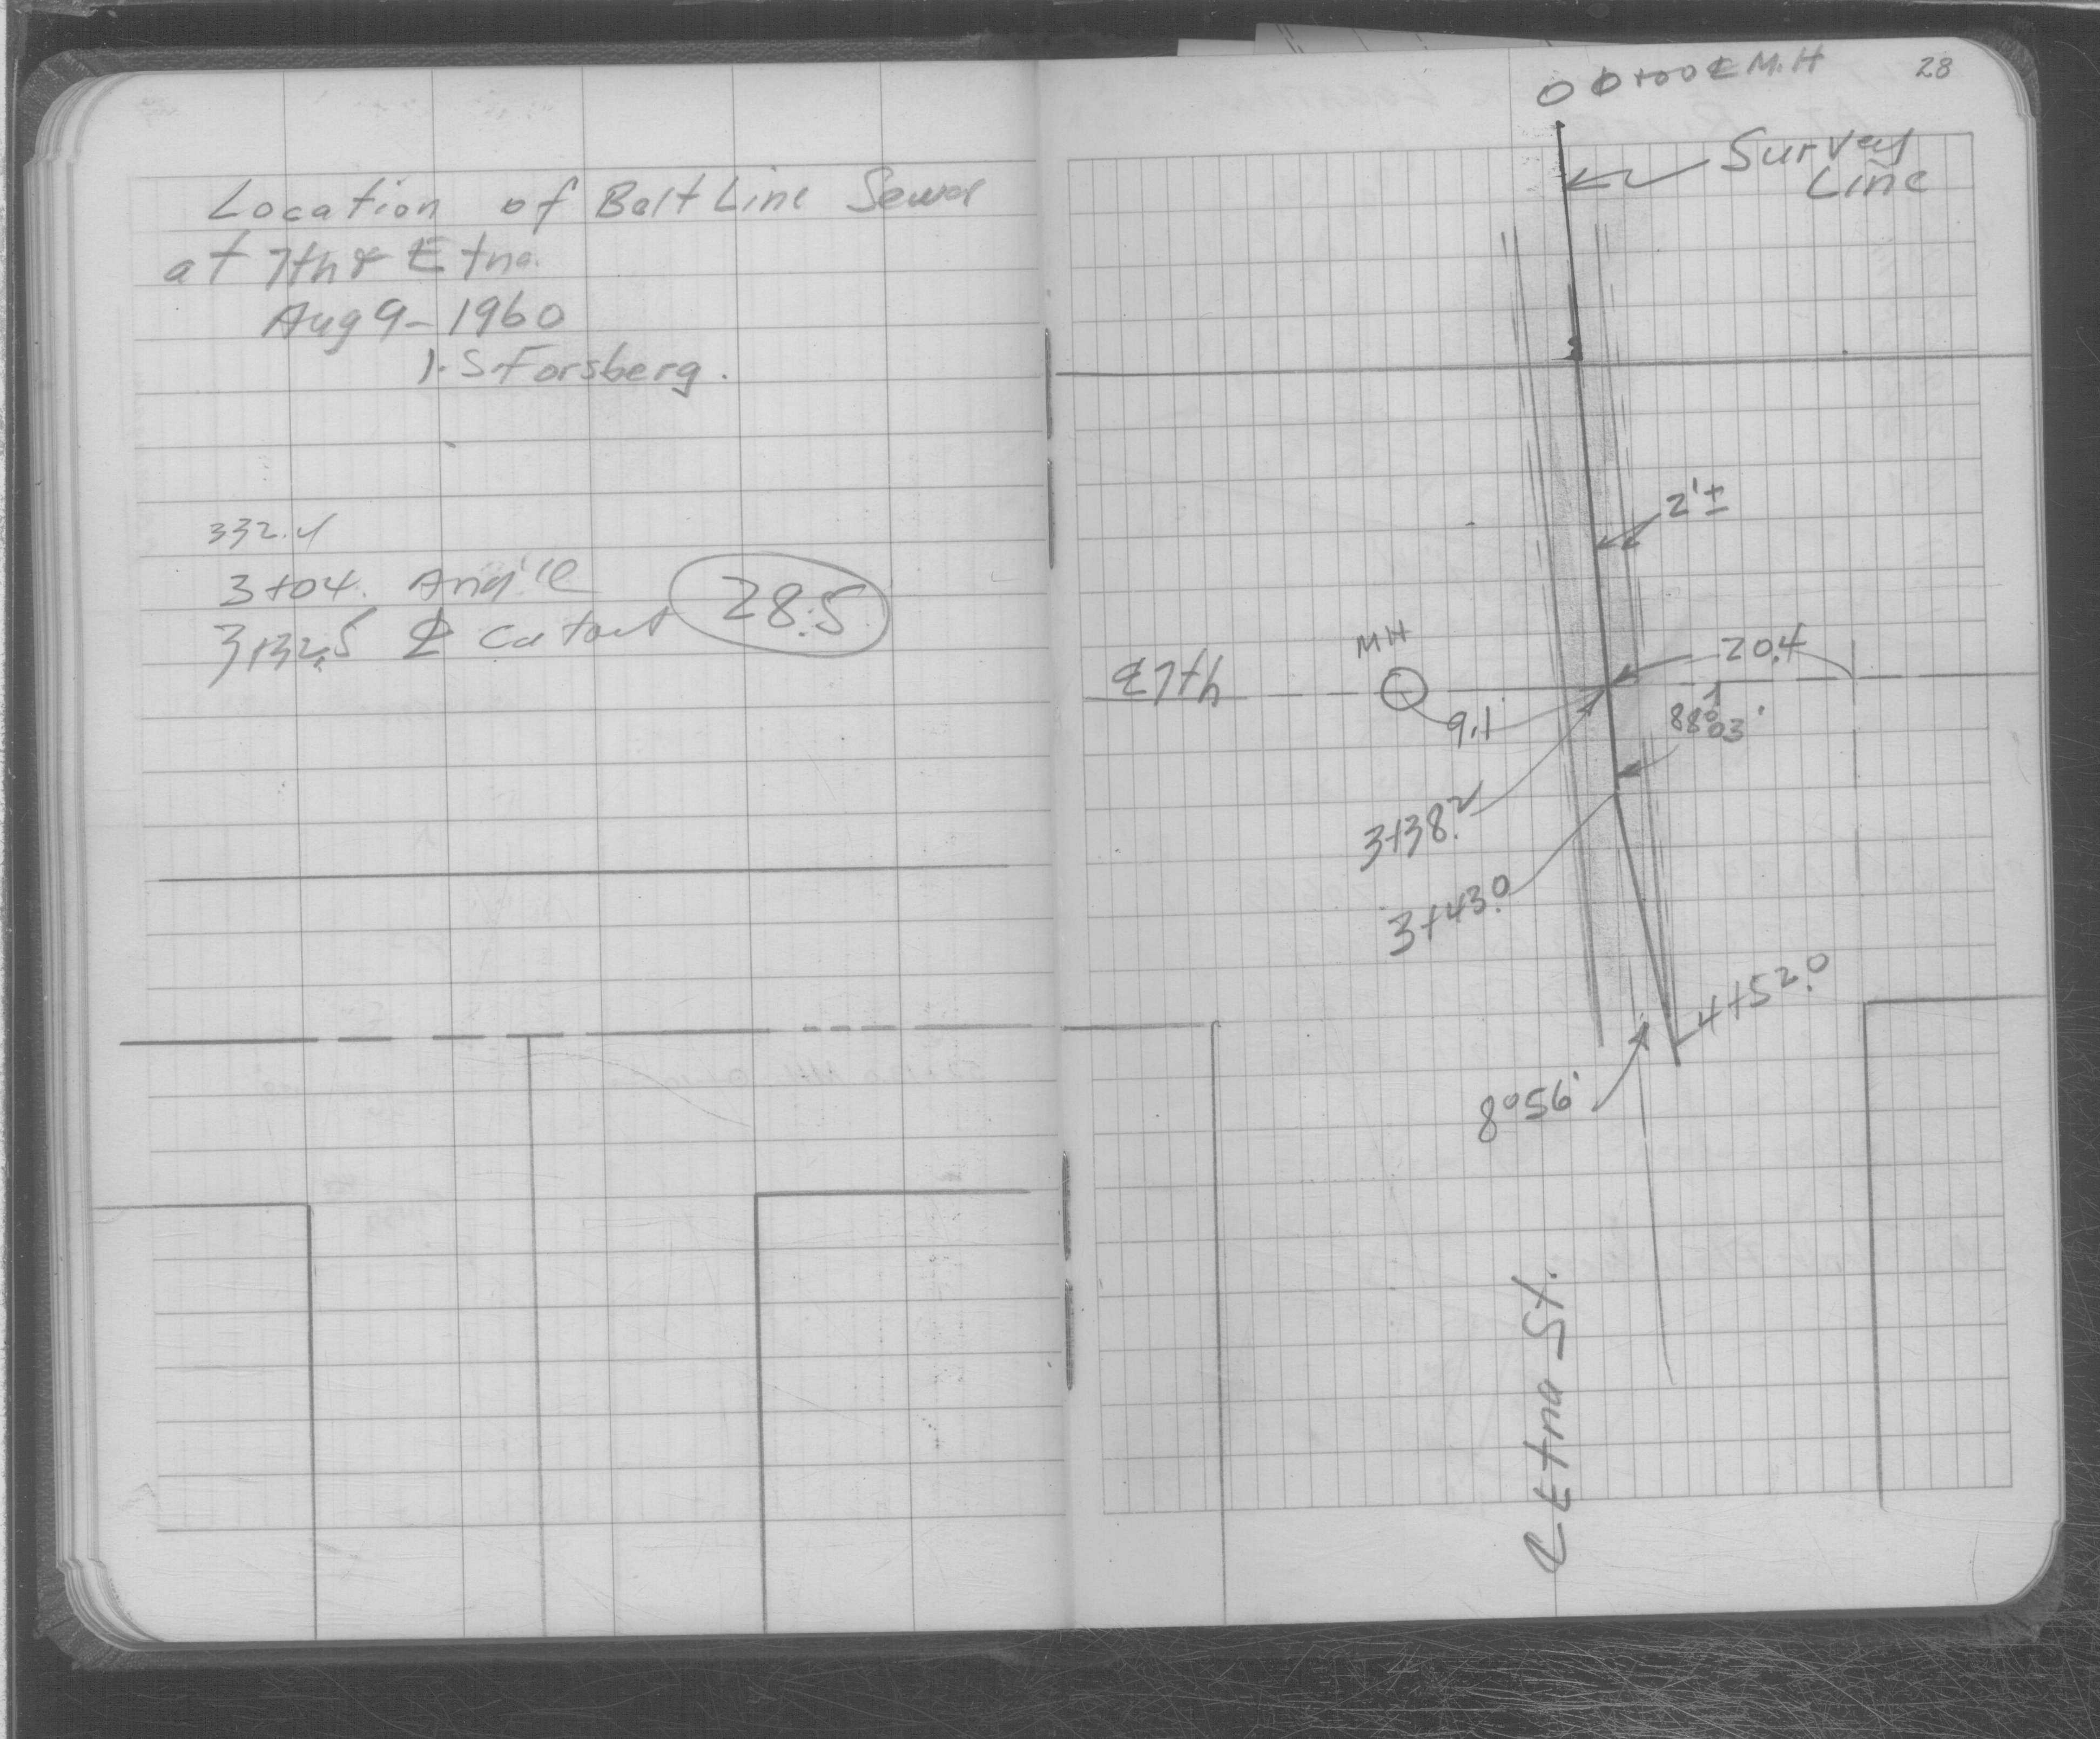 Location of Belt Line Sewer
at 7th & Etna.
Aug 9 - 1960
I. S. Forsberg.
332.4
3+04. Angle
3+32.5 ℄ Cutout 28.5
28
0+00 ℄ M.H
Survey
Line
2'±
MH
20.4
℄ 7th
9.1
88°03'
3+38.2
3+43.0
4+52.0
8°56'
℄ Etna St.